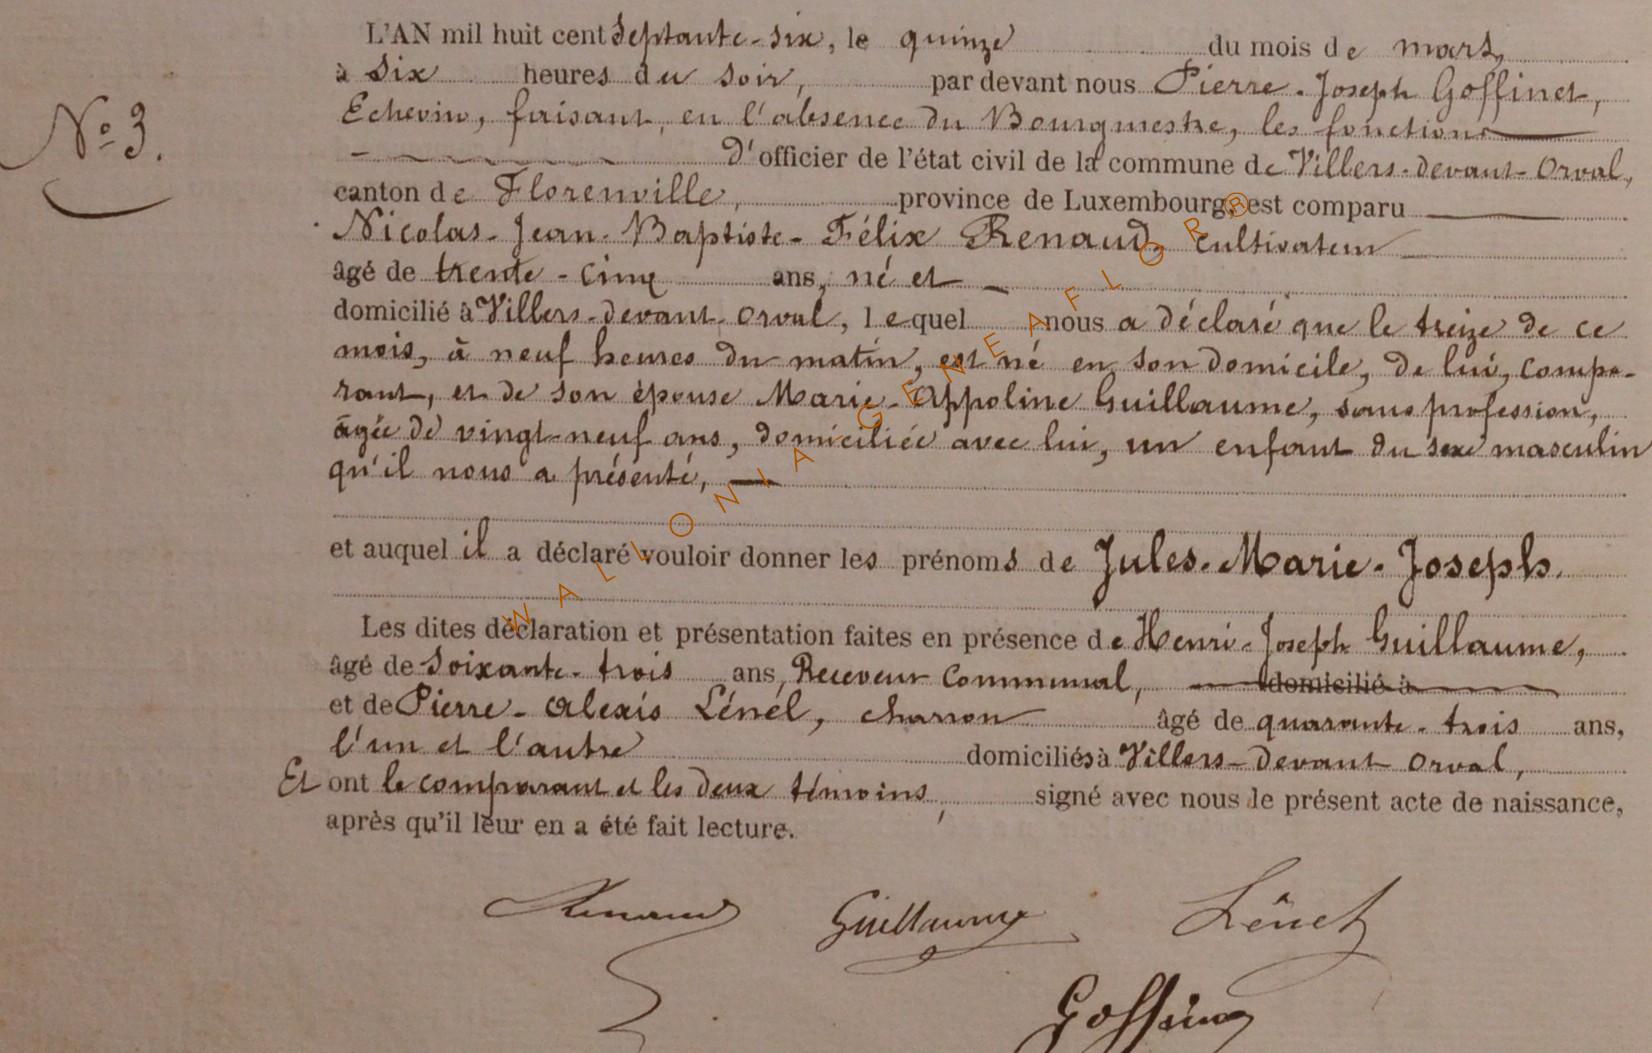 L'AN mil huit cent septante-six, le quinze du mois de mars,
à six heures du soir, par devant nous Pierre-Joseph Goffinet,
Echevin, faisant, en l'absence du Bourgmestre, les fonctions
N° 3.
d'officier de l'état civil de la commune de Villers-devant-Orval,
canton de Florenville, province de Luxembourg, est comparu
Nicolas-Jean-Baptiste-Félix Renaud, cultivateur
âgé de trente-cinq ans, né et
domicilié à Villers-devant-Orval, lequel nous a déclaré que le treize de ce
mois, à neuf heures du matin, est né en son domicile, de lui, compa-
rant, et de son épouse Marie-Appoline Guillaume, sans profession,
âgée de vingt-neuf ans, domiciliée avec lui, un enfant du sexe masculin
qu'il nous a présenté,
et auquel il a déclaré vouloir donner les prénoms de Jules-Marie-Joseph.
Les dites déclaration et présentation faites en présence de Henri-Joseph Guillaume,
âgé de soixante-trois ans, Receveur Communal, domicilié à
et de Pierre-Alexis Lénél, charron âgé de quarante-trois ans,
l'un et l'autre domiciliés à Villers-devant-Orval,
Et ont le comparant et les deux témoins, signé avec nous le présent acte de naissance,
après qu'il leur en a été fait lecture.
Renaud Guillaume Lénel
Goffinet
WALLONIA GENEAFLOR ®